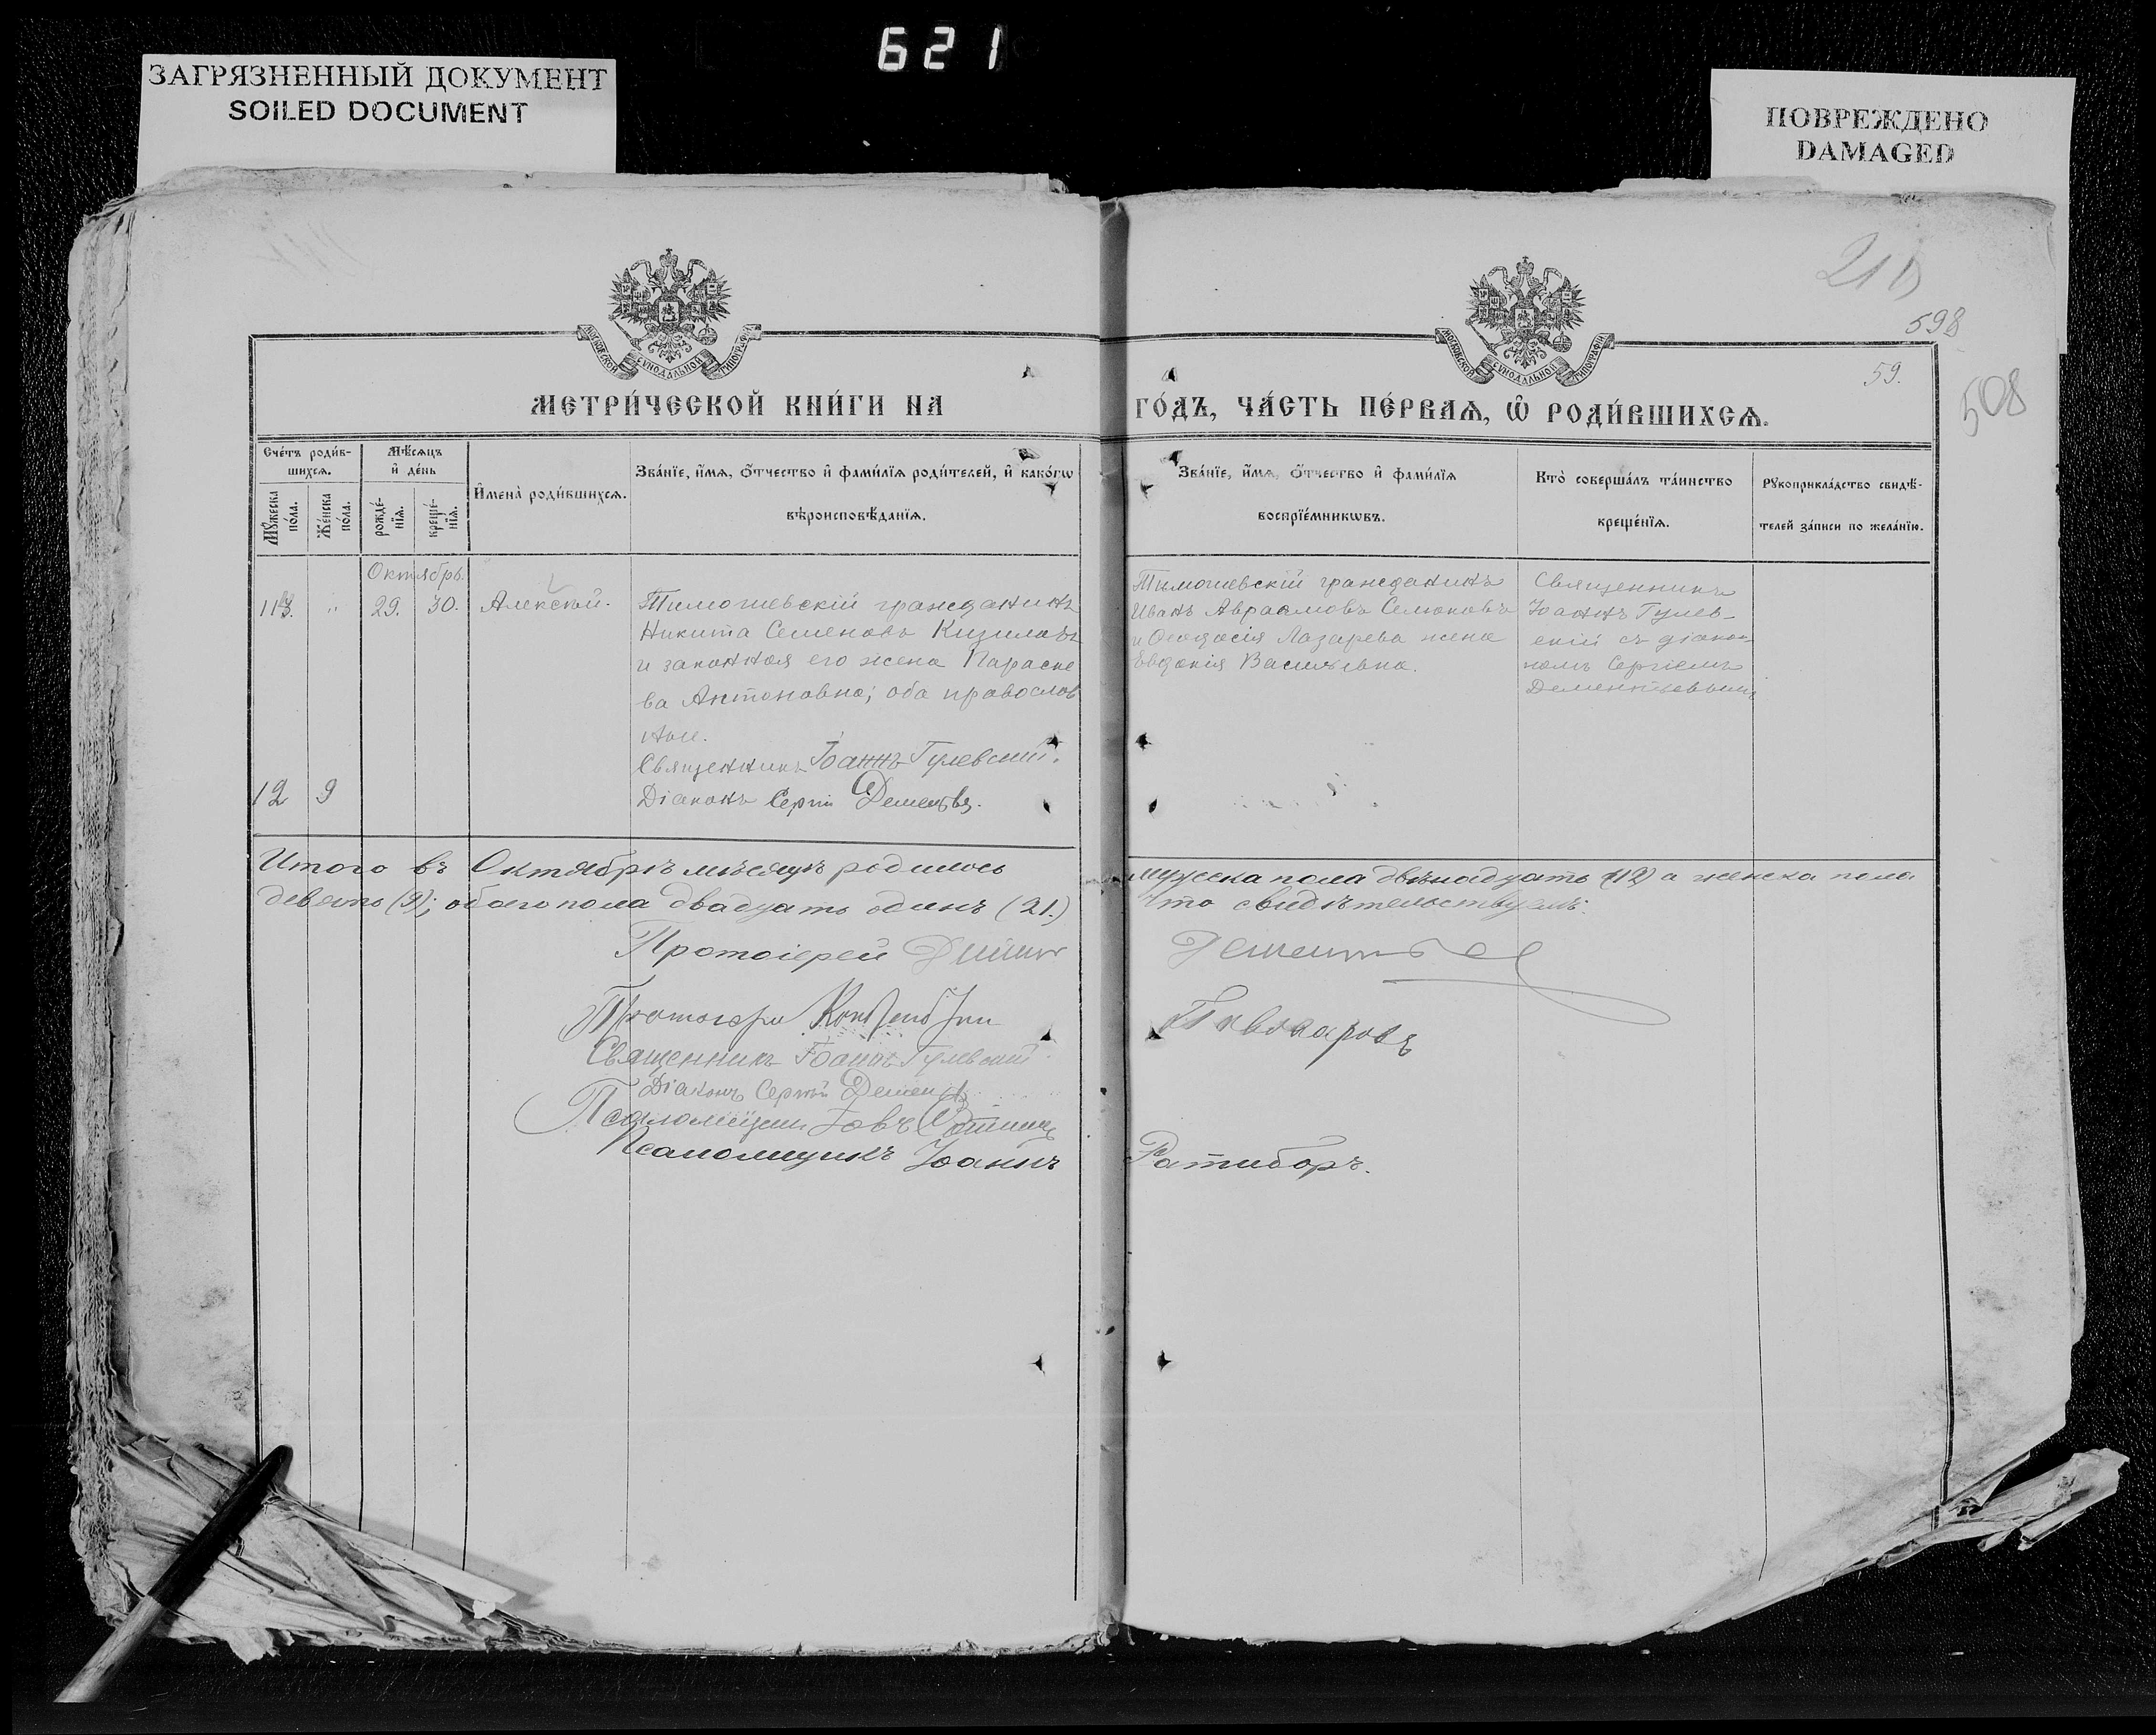 621
ЗАГРЯЗНЕННЫЙ ДОКУМЕНТ
SOILED DOCUMENT
ПОВРЕЖДЕНО
DAMAGED
598
59.
508
МОСКОВСКОЙ СѴНОДАЛЬНОЙ ТИПОГРАФІИ
МОСКОВСКОЙ СѴНОДАЛЬНОЙ ТИПОГРАФІИ
МЕТРИ́ЧЕСКОЙ КНИ́ГИ НА
ГО́ДЪ, ЧА́СТЬ ПЕ́РВАѦ, Ѡ҆ РОДИ́ВШИХСѦ.
Сче́тъ роди́в-
шихсѧ.
Мѣ́сѧцъ
и҆ де́нь
Мꙋ́жеска
по́ла.
Же́нска
по́ла.
рожде́-
нїѧ.
креще́-
нїѧ.
И҆мена̀ роди́вшихсѧ.
Зва́нїе, и҆́мѧ, ѻ҆́тчество и҆ фами́лїѧ роди́телей, и҆ како́гѡ
вѣроисповѣ́данїѧ.
Зва́нїе, и҆́мѧ, ѻ҆́тчество и҆ фами́лїѧ
воспрїе́мникѡвъ.
Кто̀ соверша́лъ та́инство
креще́нїѧ.
Рꙋкоприкла́дство свидѣ́-
телей за́писи по жела́нїю.
Октябрь.
29. 30. Алексѣй.
Тимошевскій гражданинъ
Никита Семеновъ
и законная его жена Параске
ва Антоновна; оба православ
ные.
Священникъ Іоаннъ Гулевскій.
12 9
Діаконъ Сергій Дементьевъ.
Тимошевскій гражданинъ
Иванъ Авраамовъ Семоновъ
и Ѳеодосія Лазарева жена
Евдокія Васильевна.
Священникъ
Іоаннъ Гулев-
скій съ діако-
номъ Сергіемъ
Дементьевымъ
Итого въ Октябрѣ мѣсяцѣ родилось
мужеска пола двѣнадцать (12) а женска пола
девять (9); обоего пола двадцать одинъ (21.)
Что свидѣтельствуемъ:
Протоіерей
Протоіерей
Священникъ Іоаннъ Гулевскій
Діаконъ Сергій Дементьевъ
Псаломщикъ Іовъ
Псаломщикъ Іоаннъ Ратиборъ.